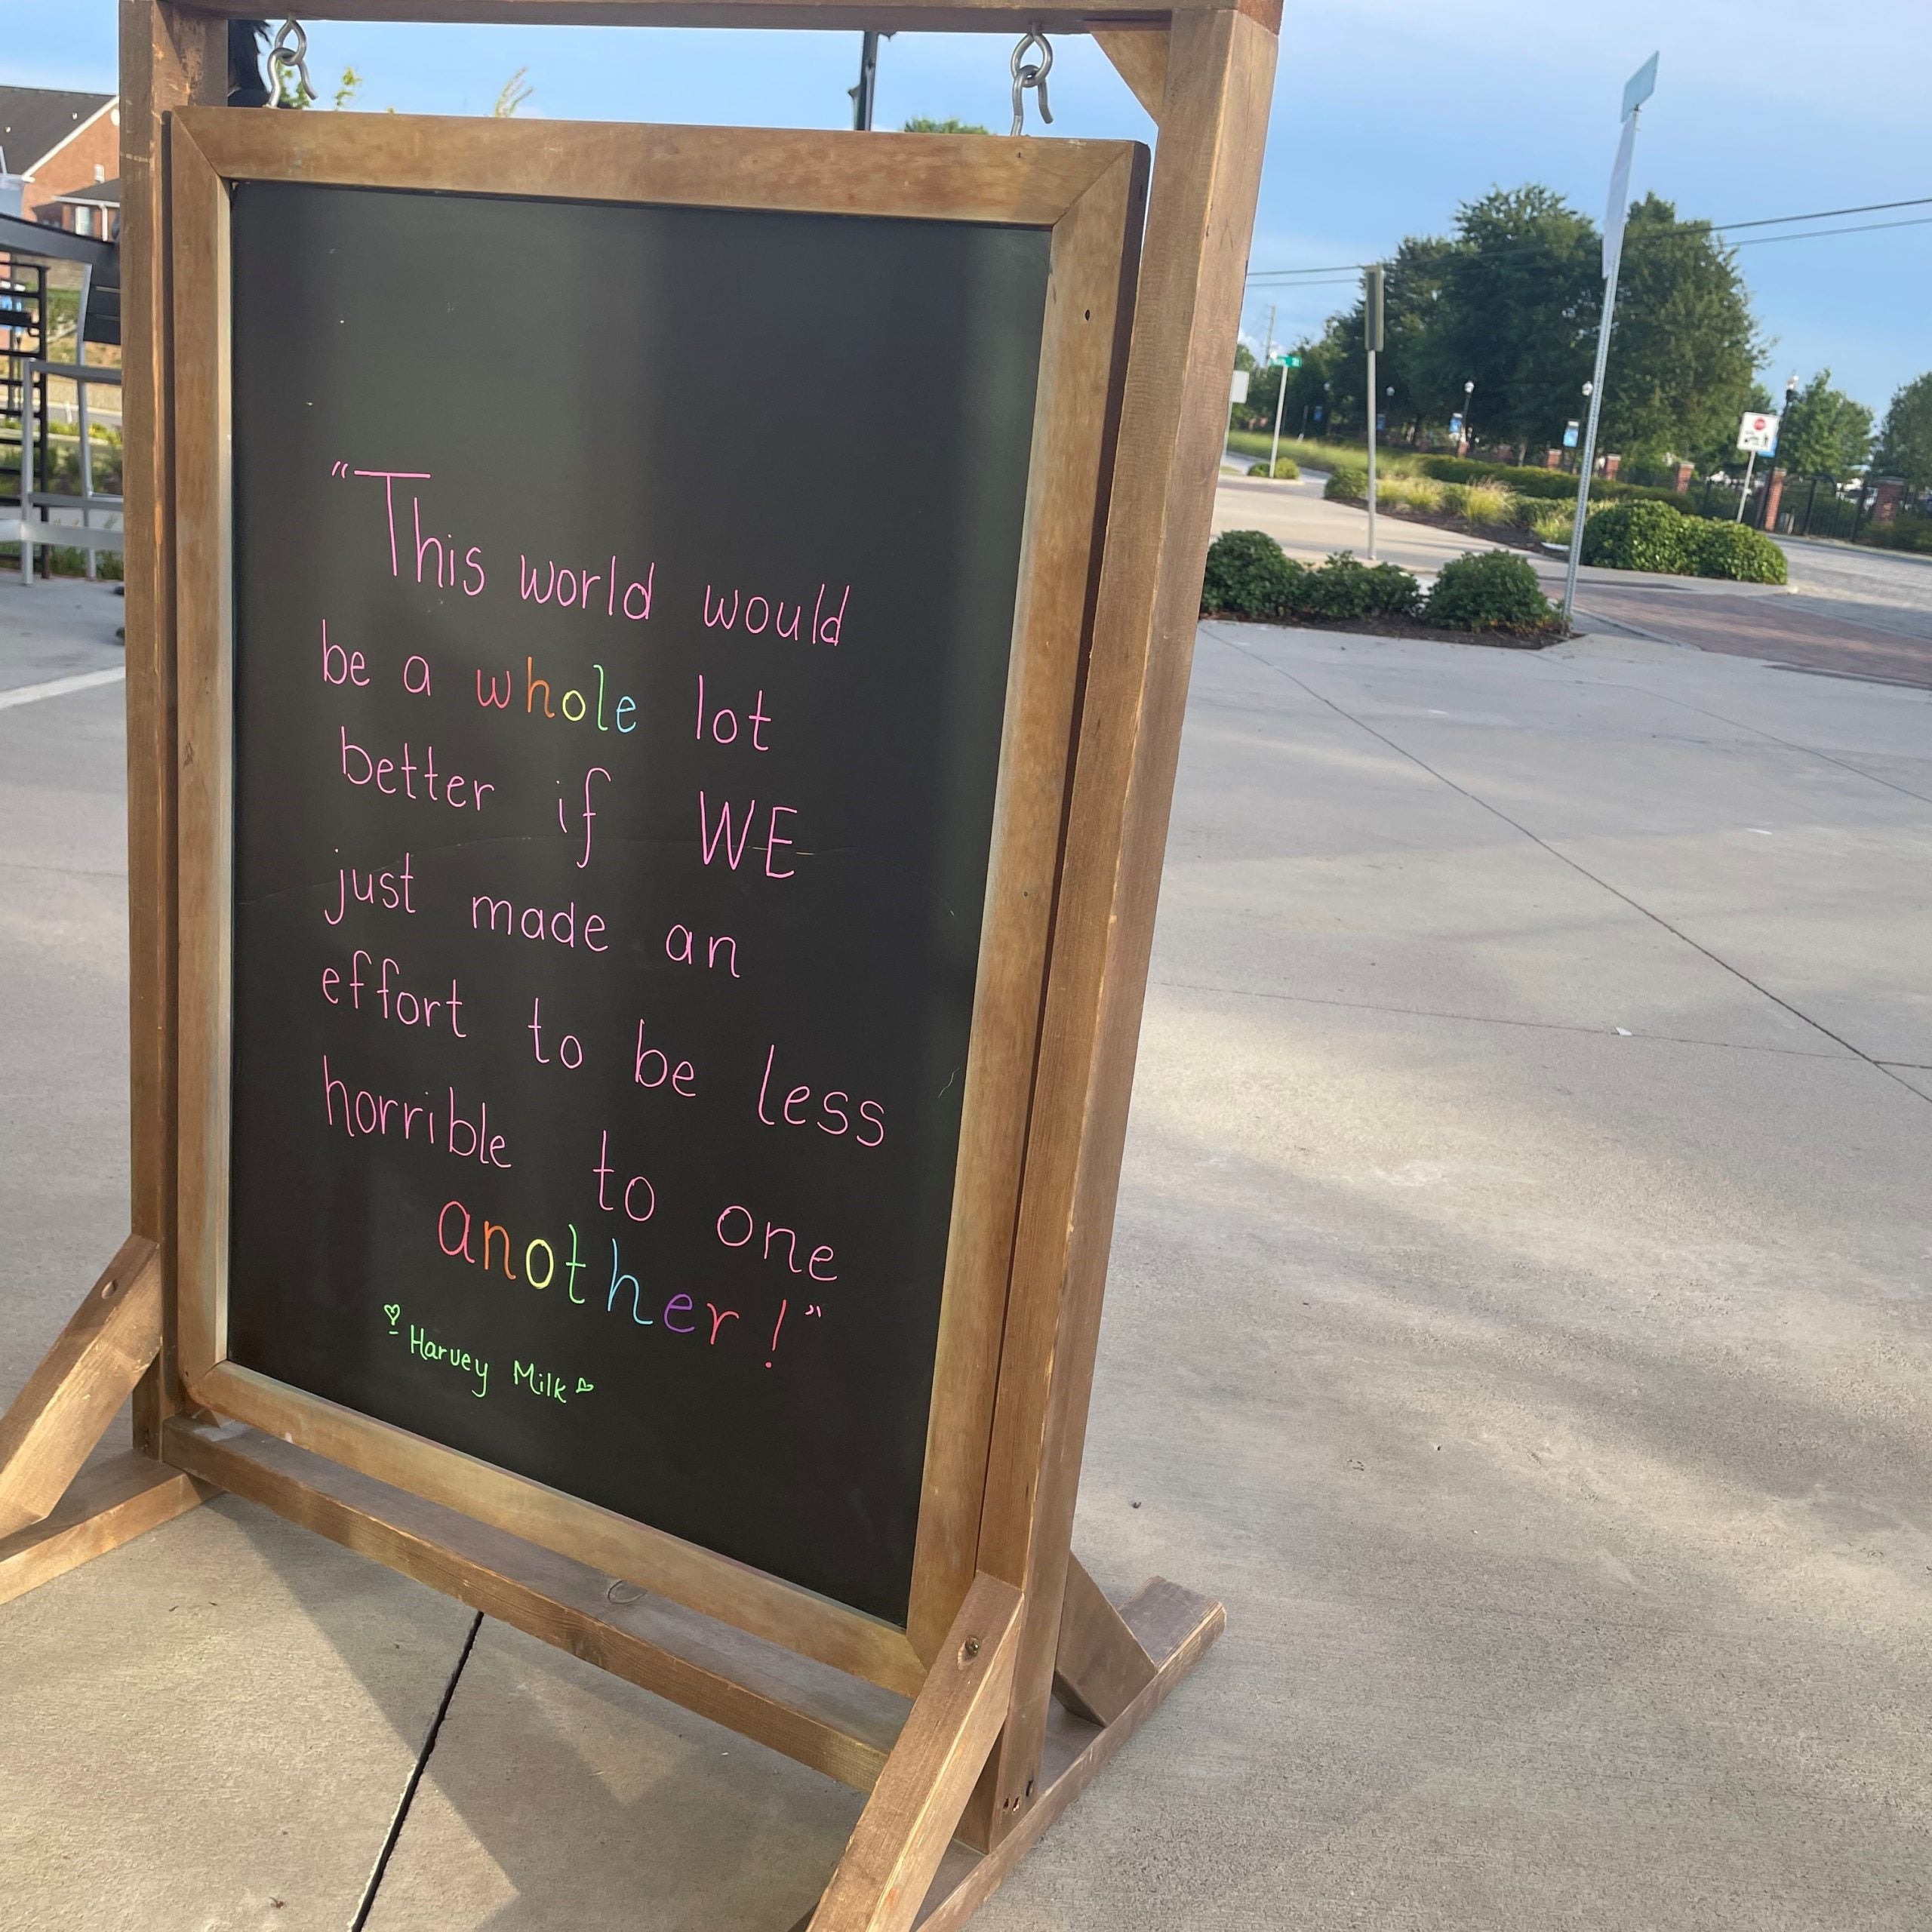 “This world would
be a whole lot
better if WE
just made an
effort to be less
horrible to one
another!”
- Harvey Milk